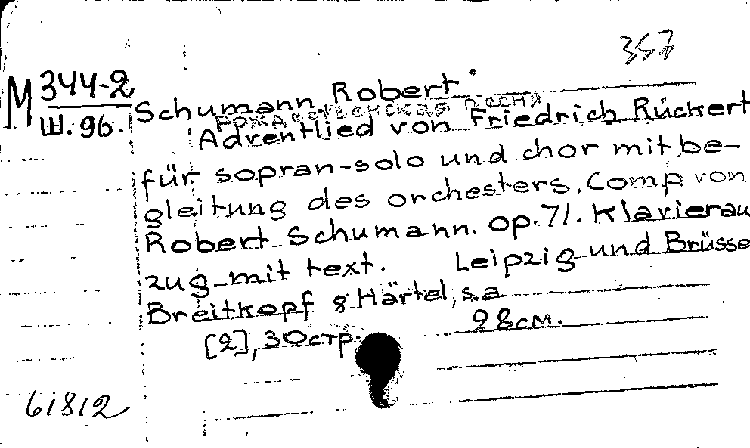 357
М 344-2
Ш.96.
Schumann, Robert.
Рождественская песня
Adventlied von Friedrich Rückert
für sopran-solo und chor mit be-
gleitung des orchesters. Comp von
Robert Schumann. op.71. Klavierau
zug mit text. Leipzig und Brüsse
Breitkopf & Härtel, s.a
[2], 30стр. 28см.
61812